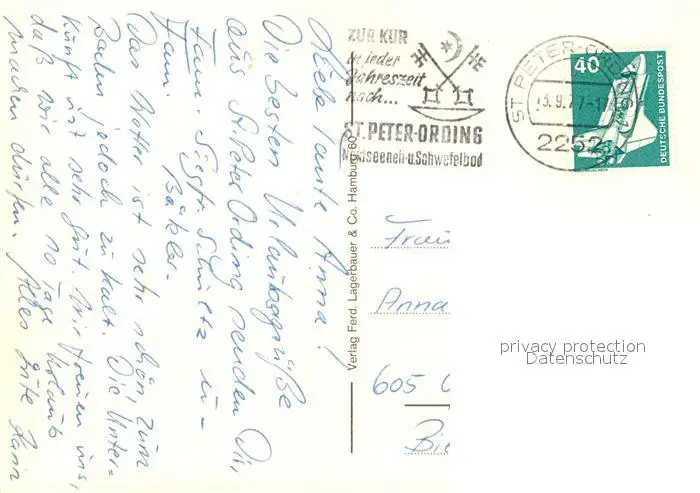 Liebe Tante Anna!
Die besten Urlaubsgrüße
aus St. Peter Ording senden Dir,
Fam. Siegfr. Schultz u-
Fam. Bäkler-
Das Wetter ist sehr schön, zum
Baden jedoch zu kalt. Die Unter-
kunft ist sehr gut. Wir freuen uns,
daß wir alle 10 Tage Urlaub
machen dürfen. Alles Gute
Verlag Ferd. Lagerbauer & Co. Hamburg 60
ZUR KUR
in jeder
Jahreszeit
nach...
ST. PETER-ORDING
Nordseeheil- u. Schwefelbad
ST. PETER-ORDING
13.9.77-17
2252
40
DEUTSCHE BUNDESPOST
Frau
Anna
605
Bie
privacy protection
Datenschutz